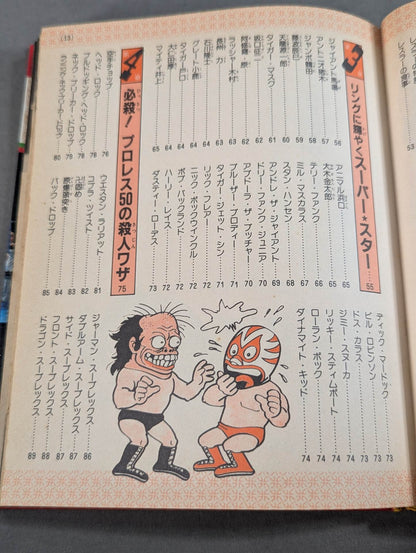 (13)
3章 リングに輝やくスーパー★スター……55
ジャイアント馬場……56
アントニオ猪木……57
ジャンボ鶴田……58
藤波辰巳……59
タイガー・マスク……60
天龍源一郎……60
坂口征二……61
阿修羅・原……61
ラッシャー木村……62
長州 力……62
石川隆士……63
グレート小鹿……63
タイガー戸口……63
大仁田厚……64
マイティ井上……64
アニマル浜口……65
大木金太郎……65
テリー・ファンク……66
ミル・マスカラス……67
スタン・ハンセン……68
アンドレ・ザ・ジャイアント……69
ドリー・ファンク・ジュニア……69
アブドーラ・ザ・ブッチャー……70
ブルーザー・ブロディ……70
タイガー・ジェット・シン……71
リック・フレアー……71
ニック・ボックウインクル……72
ボブ・バックランド……72
ハーリー・レイス……73
ダスティー・ローデス……72
ディック・マードック……73
ビル・ロビンソン……73
ドス・カラス……73
ジミー・スヌーカ……74
リッキー・スティムボート……74
ローラン・ボック……74
ダイナマイト・キッド……74
4章 必殺！プロレス50の殺人ワザ……75
空手チョップ……76
ヘッド・ロック……78
ブルドッキング・ヘッド・ロック……78
ネック・ブリーカー・ドロップ……79
ランニング・ネック・ブリーカー・ドロップ……80
ウエスタン・ラリアット……81
コブラ・ツイスト……82
卍固め……83
原爆頭突き……84
バック・ドロップ……85
ジャーマン・スープレックス……86
ダブルアーム・スープレックス……87
サイド・スープレックス……87
フロント・スープレックス……88
ドラゴン・スープレックス……89